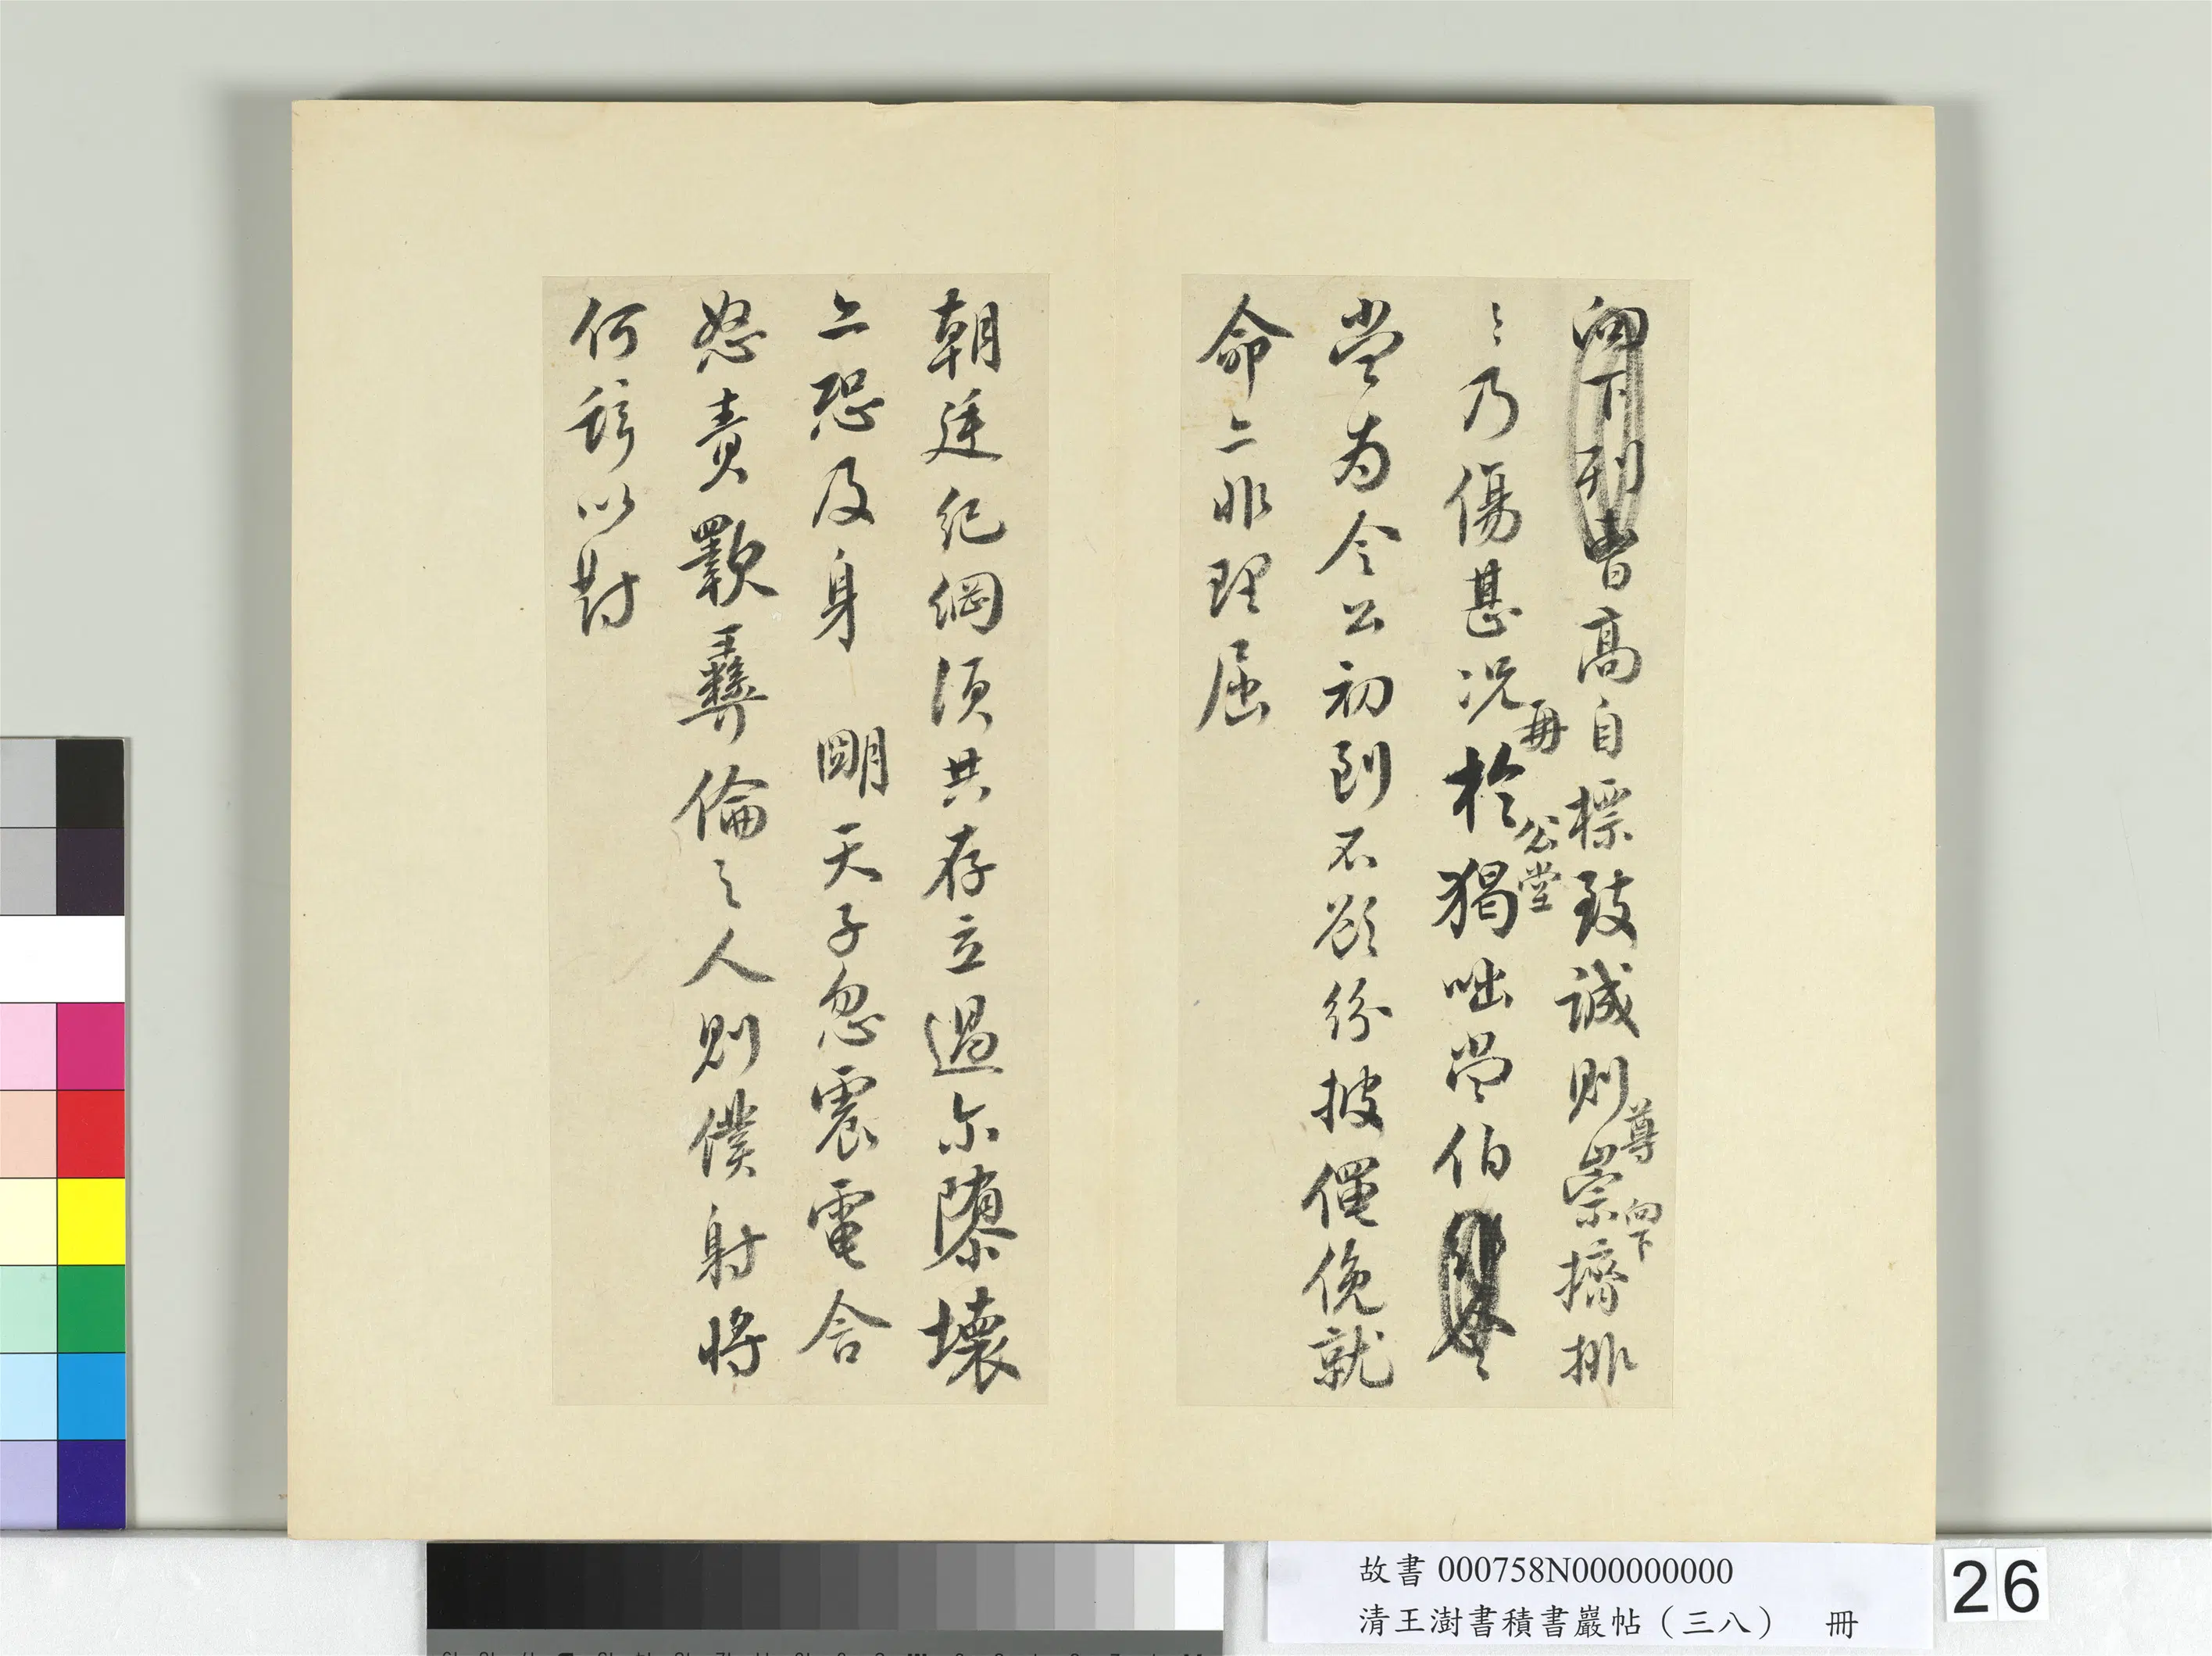 高自標致誠則尊崇向下擠排
之乃傷甚況再於公堂猲咄常伯
當為令公初到不欲紛披僶俛就
命亦非理屈
朝廷紀綱須共存立過尔隳壞
亦恐及身 明天子忽震電含
怒責斁彝倫之人則僕射將
何辞以對
故書 000758N000000000
清王澍書積書巖帖（三八） 冊
26